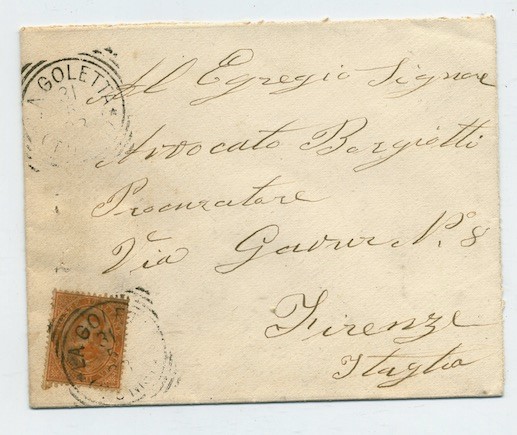 LA GOLETTA
21
Al Egregio Signore
Avvocato Borgiotti
Procuratore
Via Gavur N. 8
LA GO
21
Firenze
Itaglia